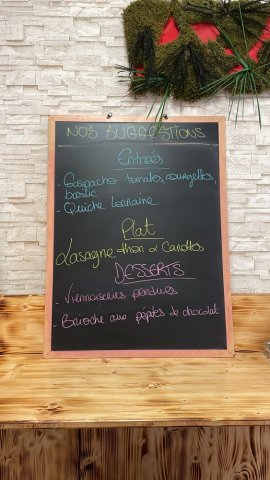 NOS SUGGESTIONS
Entrées
- Gaspacho tomates, courgettes,
basilic
- Quiche Lorraine
Plat
Lasagne thon & Carottes
DESSERTS
- Viennoiseries perdues
- Brioche aux pépites de chocolat